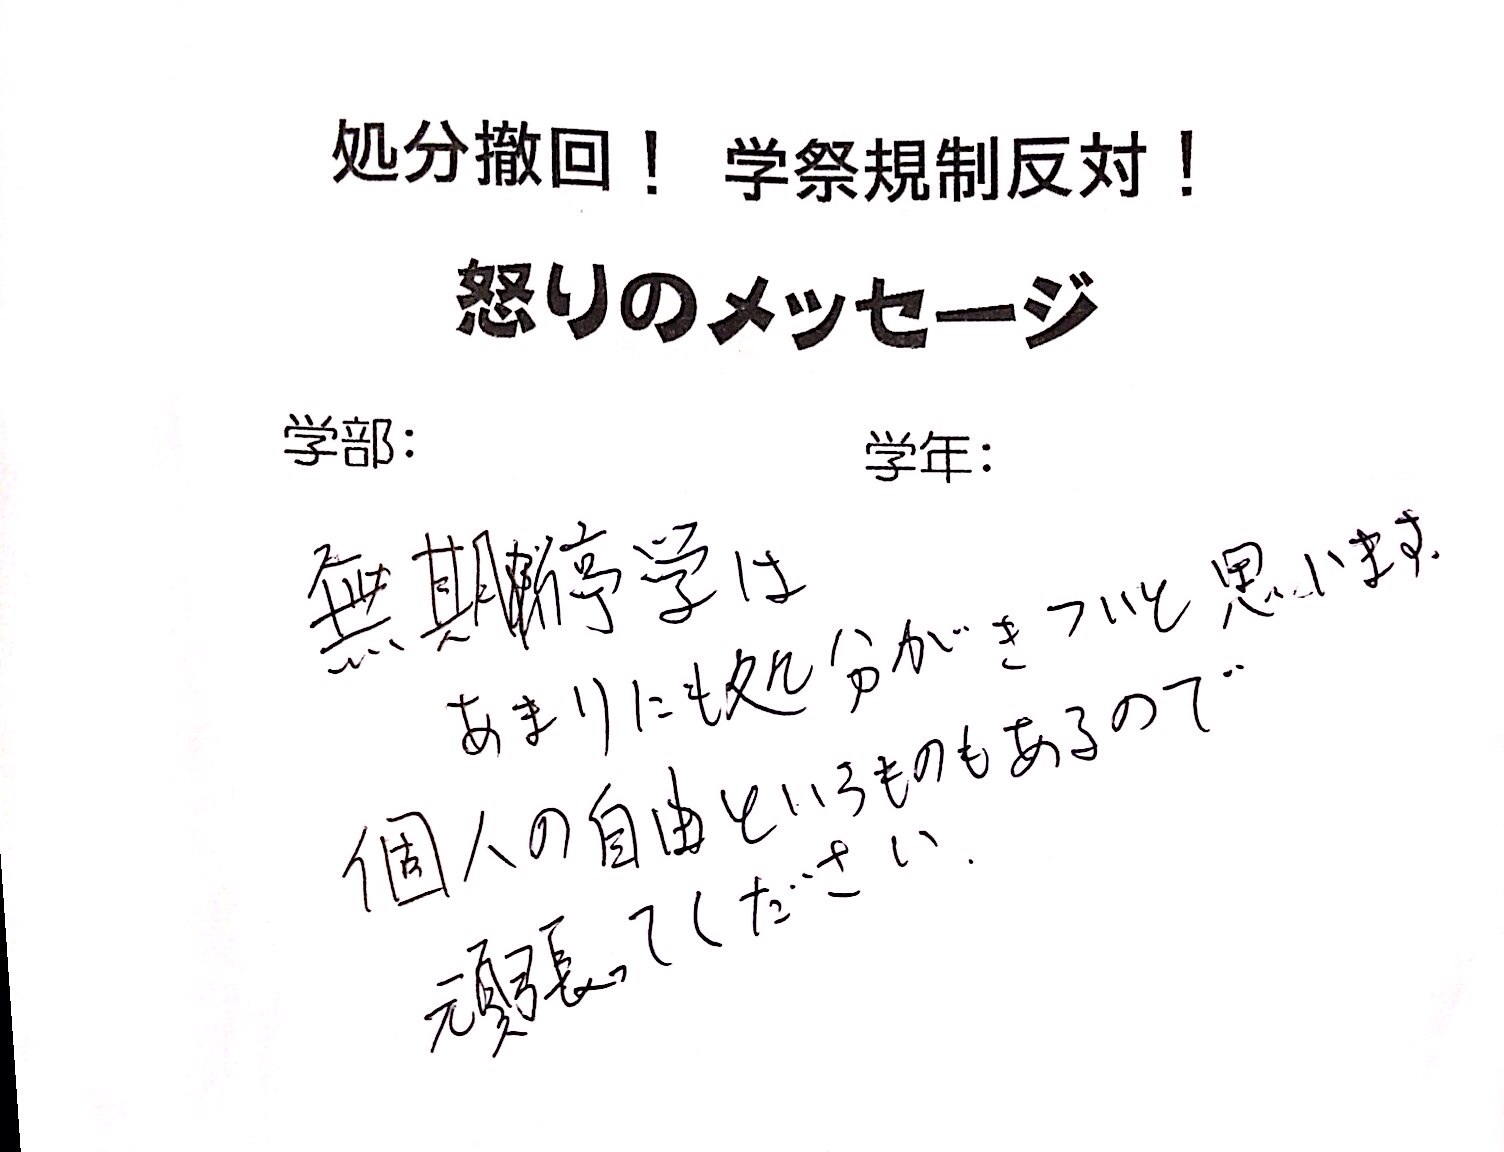 処分撤回! 学祭規制反対!
怒りのメッセージ
学部: 学年:
無期停学は
あまりにも処分がきついと思います。
個人の自由というものもあるので
頑張ってください.